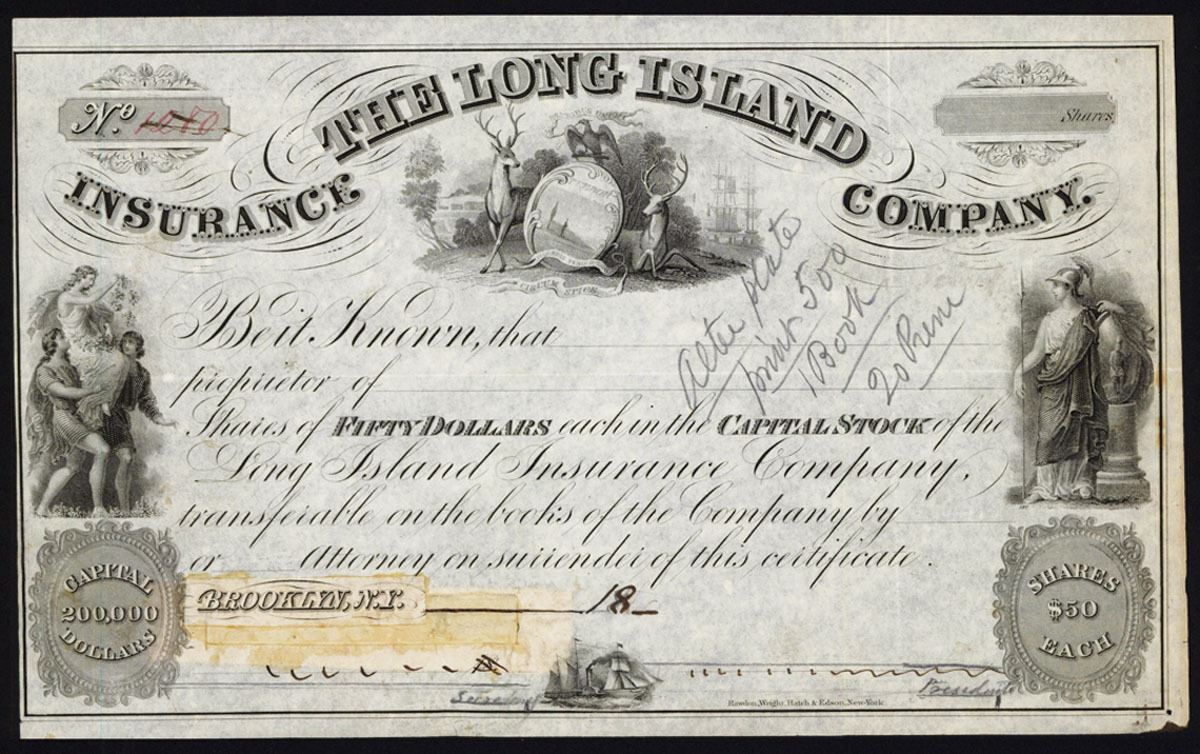 No. 1280
Shares
THE LONG ISLAND
INSURANCE COMPANY.
Be it Known, that
proprietor of
Shares of FIFTY DOLLARS each in the CAPITAL STOCK of the
Long Island Insurance Company,
transferable on the books of the Company by
or Attorney on surrender of this certificate.
Alter plate
print 500
1 Book
20 Prem
CAPITAL
200,000
DOLLARS
BROOKLYN, N.Y. 18
SHARES
$50
EACH
Secretary
President
Rawdon, Wright, Hatch & Edson, New-York.